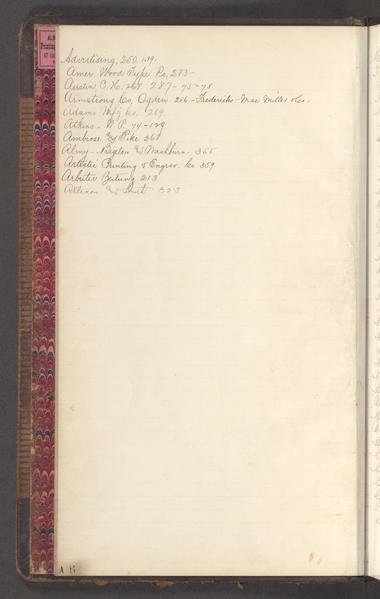 Advertising, 250. 139.
Amer. Wood Type Co, 283-
Austin C. H. 268 287-75-78
Armstrong Co, Ogden 256-Fredericks-Mac Miller &Co-
Adams Mfg Co. 289
Atkins- W. P. 74-179
Ambrose & Pike 268
Almy- Bigelow & Washburn- 355
Artistic Printing & Engrav. Co 359
Arbeiter Zeitung 213
Allison & Smith 323
A B